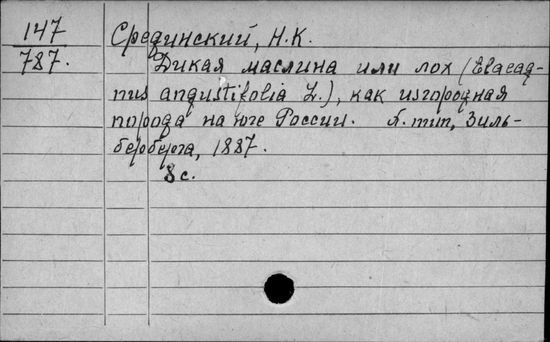 147
787.
Срединский, Н.К.
Дикая маслина или лох (Elaeag-
nus angustifolia L.), как изгородная
порода на юге России. Х. тип, Зиль-
берберга, 1887.
8 с.